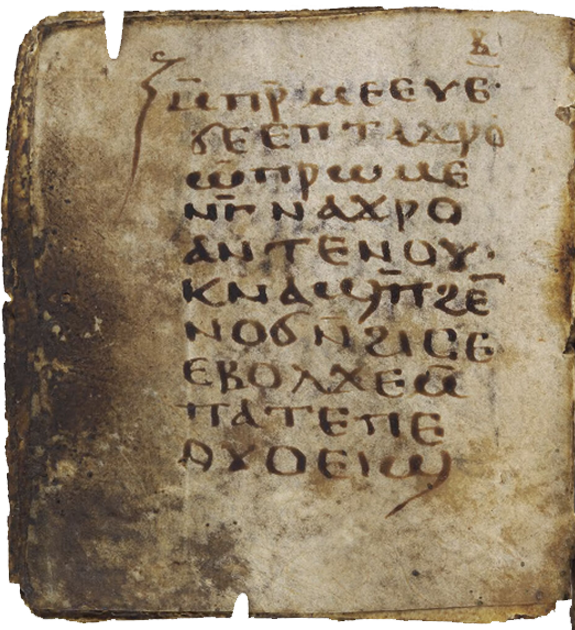 ⲙ̅ⲡⲣ̅ⲙⲉⲉⲩⲉ·
ϭⲉⲉⲡⲧⲁϫⲣⲟ
ⲱ̅ⲡⲣⲱⲙⲉ
ⲛⲅ̅ⲛⲁϫⲣⲟ
ⲁⲛⲧⲉⲛⲟⲩ·
ⲕⲛⲁϣⲡ̅ϩⲉ̅
ⲛⲟϭⲛ̅ϩⲓⲥⲉ
ⲉⲃⲟⲗϫⲉⲙ̅
ⲡⲁⲧⲉⲡⲉ
ⲟⲩⲟⲉⲓϣ